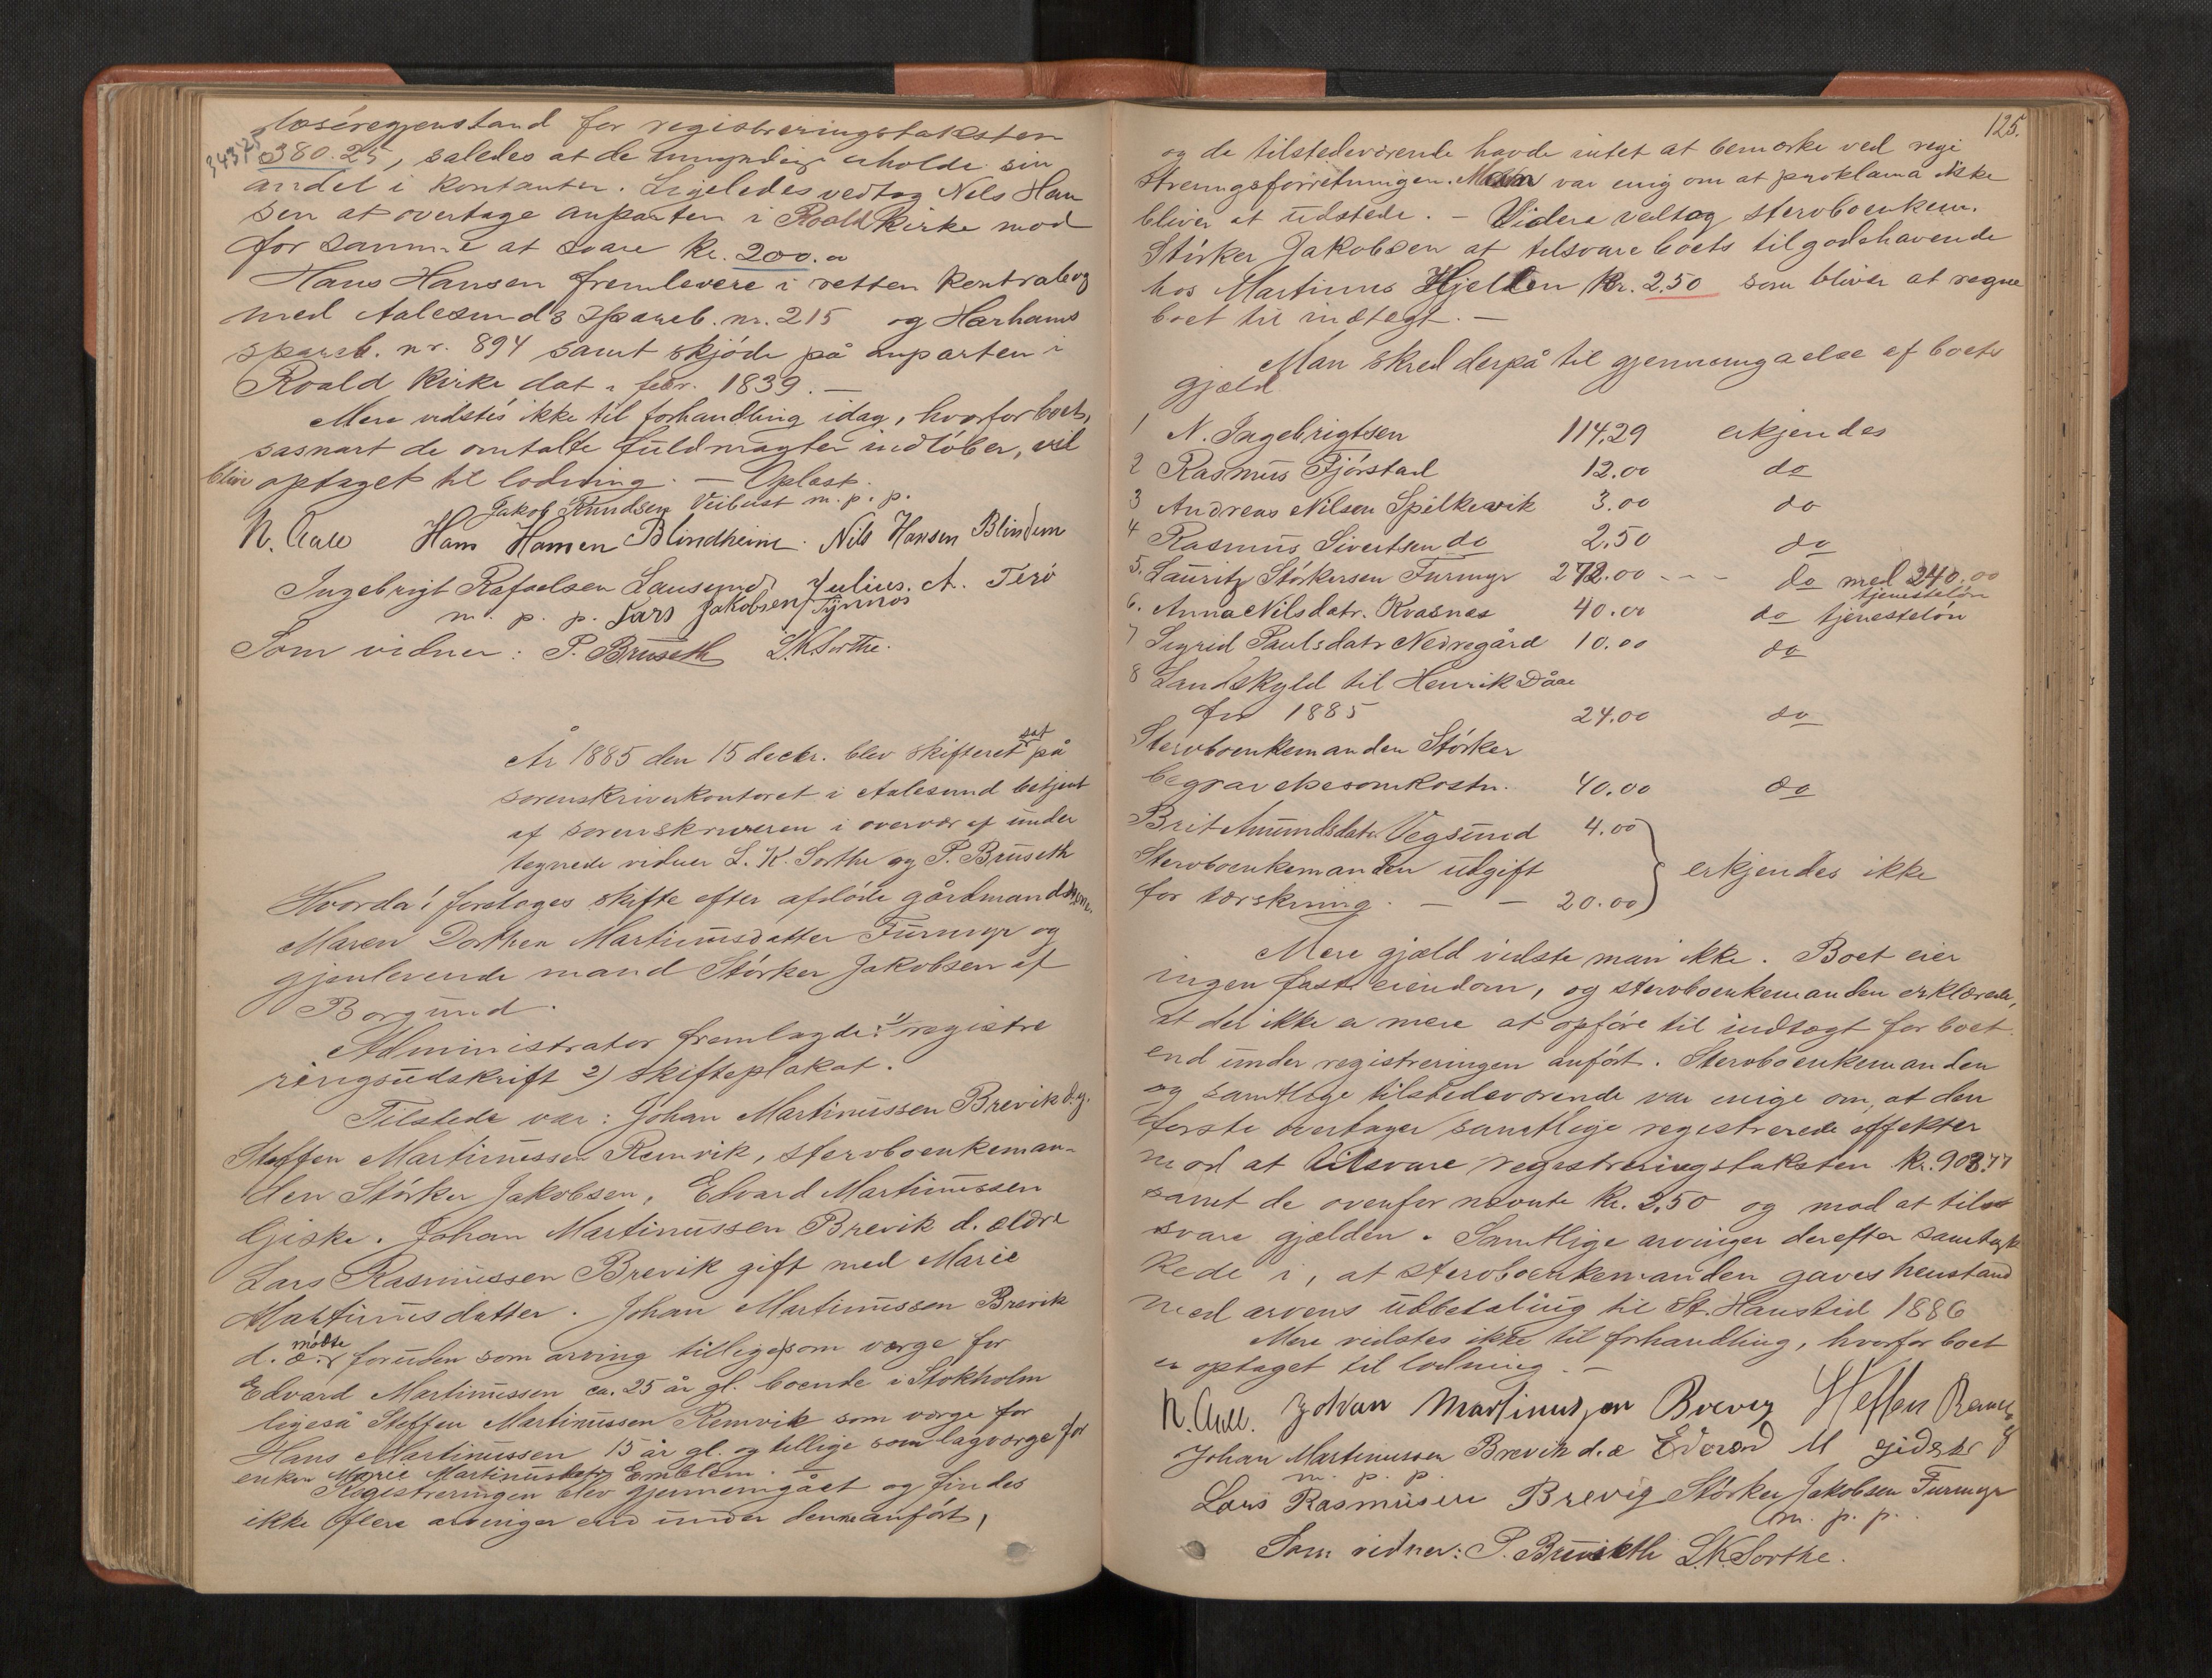 løsøregjenstand for registreringstaksten
34375
380.25, saledes at de umyndige erholde sin
andel i kontanter. Ligeledes vedtog Nels Han
sen at overtage anparten i Roald kirke mod
for samme at svare kr. 200.00
Hans Hansen fremlevere i retten kontrabog
med Aalesunds spareb. nr. 215 og Harhams
spareb. nr. 894 samt skjøde på anparten i
Roald kirke dat. febr. 1839. —
Mere vidstes ikke til forhandling idag, hvorfor boet,
sasnart de omtalte fuldmagter indløber, vil
blive optaget til lodning. — Oplæst.
Jakob Knudsen Veibust m. p. p.
N. Aall Hans Hansen Blindheim. Nils Hansen Blindem
Ingebrigt Rafaelsen Lausund Julius. A. Terø
m. p. p. Lars Jakobsen Synnes
Som vidner: P. Bruseth L.K. Sorthe.
År 1885 den 15 decbr. blev skifteret sat på
sorenskriverkontoret i Aalesund betjent
af sorenskriveren i overvær af under
tegnede vidner L. K. Sorthe og P. Bruseth
Hvorda! foretoges skifte efter afdøde gårdmandskone
Maren Dorthea Martinusdatter Furmyr og
gjenlevende mand Størker Jakobsen af
Borgund.
Administrator fremlagde: 1) registre
ringsudskrift 2) skifteplakat.
Tilstede var: Johan Martinussen Brevik d. y.
Steffen Martinussen Remvik, stervboenkeman-
den Størker Jakobsen, Edvard Martinussen
Gjiske. Johan Martinussen Brevik d. ældre
Lars Rasmussen Brevik gift med Marie
Martinusdatter. Johan Martinussen Brevik
d. æ. mødte foruden som arving tillige som værge for
Edvard Martinussen ca. 25 år gl. boende i Stokholm
ligeså Steffen Martinussen Remvik som værge for
Hans Martinussen 15 år gl. og tillige som lagværge for
enken Marie Martinusdatr Emblem. —
Registreringen blev gjennemgået og findes
ikke flere arvinger end under denne anført,
125.
og de tilstedeværende havde intet at bemærke ved regi
streringsforretningen. Man var enig om at proklama ikke
bliver at udstede. — Videre vedtog stervboenkem.
Størker Jakobsen at tilsvare boets tilgodehavende
hos Martinus Hjellen kr. 2.50 som bliver at regne
boet til indtægt. —
Man skred derpå til gjennemgaaelse af boets
gjæld
1 N. Ingebrigtsen 114.29 erkjendes
2 Rasmus Fjørstad 12.00 do
3 Andreas Nilsen Spilkevik 3.00 do
4 Rasmus Sivertsen do 2.50 do
5. Lauritz Størkersen Furmyr 272.00 - - - do med 240.00
tjenesteløn
6. Anna Nilsdatr. Kvasnes 40.00 do tjenesteløn
7 Sigrid Paulsdatr Nedregård 10.00 do
8 Landskyld til Henrik Dåae
for 1885 24.00 do
Stervboenkemanden Størker
begravelsesomkostn. 40.00 do
Brit Amundsdatr. Vegsund 4.00
Stervboenkemanden udgift erkjendes ikke
for tærskning. — — 20.00
Mere gjæld vidste man ikke. Boet eier
ingen fast eiendom, og stervboenkemanden erklærede,
at der ikke er mere at opføre til indtægt for boet
end under registreringen anført. Stervboenkemanden
og samtlige tilstedeværende var enige om, at den
første overtager samtlige registrerede effekter
mod at tilsvare registreringstaksten kr. 908.77
samt de ovenfor nævnte kr. 2.50 og mod at til
svare gjælden. Samtlige arvinger derefter samtyk
kede i, at stervboenkemanden gaves henstand
med arvens udbetaling til St. Hanstid 1886
Mere vidstes ikke til forhandling, hvorfor boet
er optaget til lodning. —
N. Aall. Johan Martinusen Brevig Steffen Remvik
Johan Martinussen Brevik d. æ Edvard M Gjidske
m. p. p.
Lars Rasmusen Brevig Størker Jakobsen Furmyr
m. p. p.
Som vidner: P. Bruseth L.K. Sorthe.